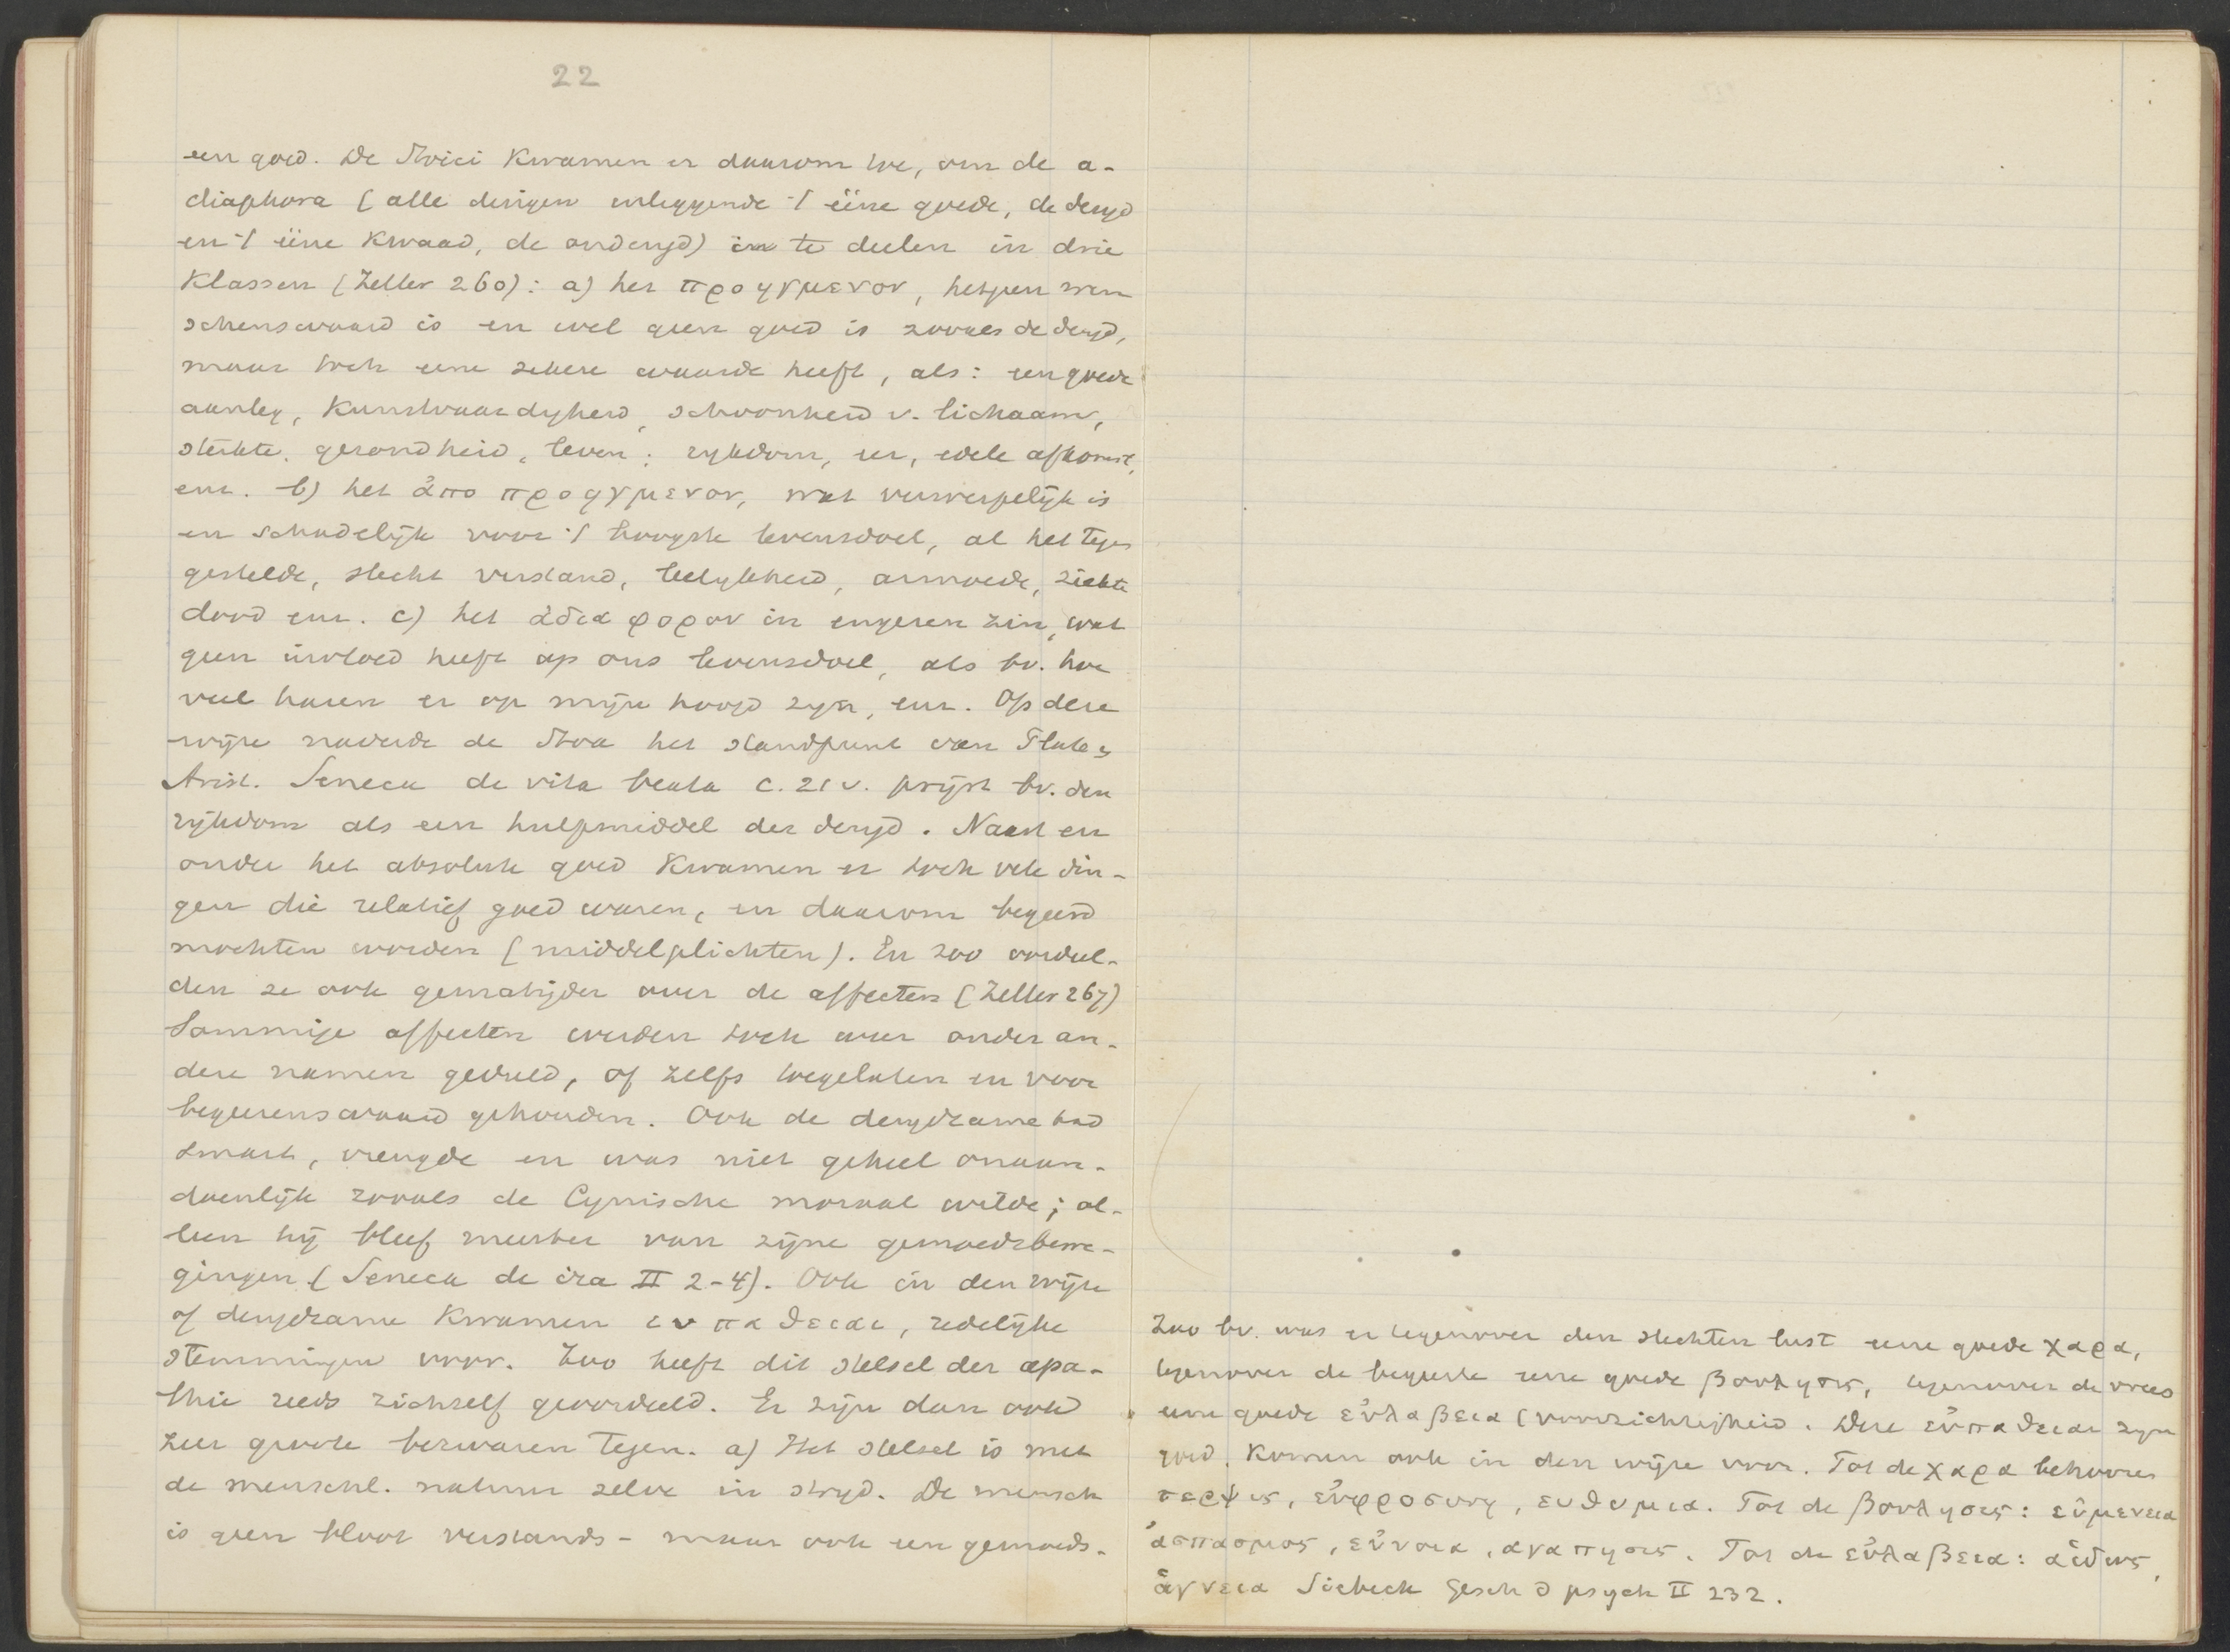 22
een goed. De Stoici kwamen er daarom toe, om de a-
diaphora (alle dingen uitleggende 't ééne goede, de deugd
en 't ééne kwaad, de ondeugd) in te deelen in drie
klassen (Zeller 260): a) het προηγμενον, hetgeen wen
schenswaard is en wel geen goed is zooals de deugd,
maar toch eene zekere waarde heeft, als: een goede
aanleg, kunstvaardigheid, schoonheid v. lichaam,
sterkte, gezondheid, leven; rijkdom, eer, edele afkomst,
enz. b) het ἀπο προηγμενον, wat verwerpelijk is
en schadelijk voor 't hoogste levensdoel, al het tegen
gestelde, slecht verstand, leelykheid, armoede, ziekte
dood enz. c) het ἀδια φορον in engeren zin, wat
geen invloed heeft op ons levensdoel, als bv. hoe
veel haren er op mijn hoofd zijn, enz. Op deze
wijze naderde de Stoa het standpunt van Plato &
Arist. Seneca de vita beata c. 21 v. prijst bv. den
rijkdom als een hulpmiddel der deugd. Naast en
onder het absolute goed kwamen er toch vele din-
gen die relatief goed waren, en daarom begeerd
mochten worden (middelplichten). En zoo oordeel-
den ze ook gematigder over de affecten (Zeller 267)
Sommige affecten werden toch weer onder an-
dere namen geduld, of zelfs toegelaten en voor
begeerenswaard gehouden. Ook de deugdzame had
smart, vreugde en was niet geheel onaan-
doenlijk zooals de Cynische moraal wilde; al-
leen hij bleef meester van zijne gemoedsbewe-
gingen (Seneca de ira II 2-4). Ook in den wijze
of deugdzame kwamen ευπαθειαι, redelijke
stemmingen voor. Zoo heeft dit stelsel der apa-
thie reeds zichself geoordeeld. Er zijn dan ook
zeer groote bezwaren tegen. a) Het stelsel is met
de menschl. natuur zelve in strijd. De mensch
is geen bloot verstands- maar ook een gemoeds-
Zoo bv. was er tegenover den slechten lust eene goede χαρα,
tegenover de begeerte eene goede βουλησις, tegenover de vrees
eene goede εὐλαβεια (voorzichtigheid. Deze εὐπαθειαι zijn
goed, komen ook in den wijze voor. Tot de χαρα behooren
τερψις, εὐφροσυνη, ευθυμια. Tot de βουλησις: εὐμενεια
ἀσπασμος, εὐνοια, αγαπησις. Tot de εὐλαβεια: αἰδως,
ἁγνεια Siebeck Gesch d psych II 232.